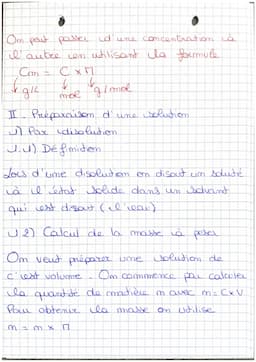 On peut passer d'une concentration à
l'autre en utilisant la formule
Cm = C x M
g/L mol g/mol
II - Préparaison d'une solution
1) Par disolution
1.1) Définition
Lors d'une disolution on disout un soluté
à l'état solide dans un solvant
qui est disout (l'eau)
1.2) Calcul de la masse à peser
On veut préparer une solution de
c'est volume. On commence par calculer
la quantité de matière n avec n = C x V
Pour obtenir la masse on utilise
m = n x M